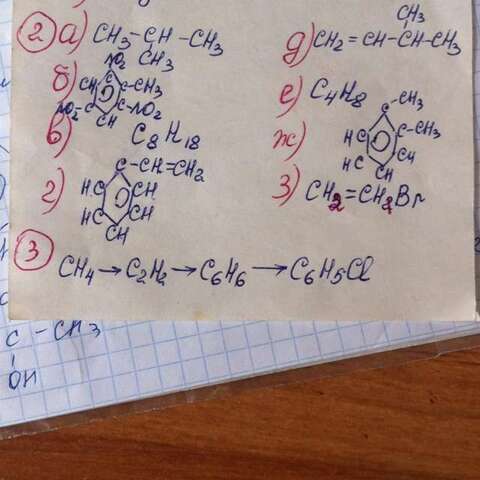 2 а) CH3-CH-CH3
CH3
б) NO2
CH C C-CH3
NO2-C C-NO2
CH
в) C8H18
г) C-CH=CH2
HC CH
HC CH
CH
CH3
д) CH2=CH-CH-CH3
е) C4H8
ж) C-CH3
HC C-CH3
HC CH
CH
з) CH2=CH2Br
3
CH4→C2H2→C6H6→C6H5Cl
C-CH3
OH